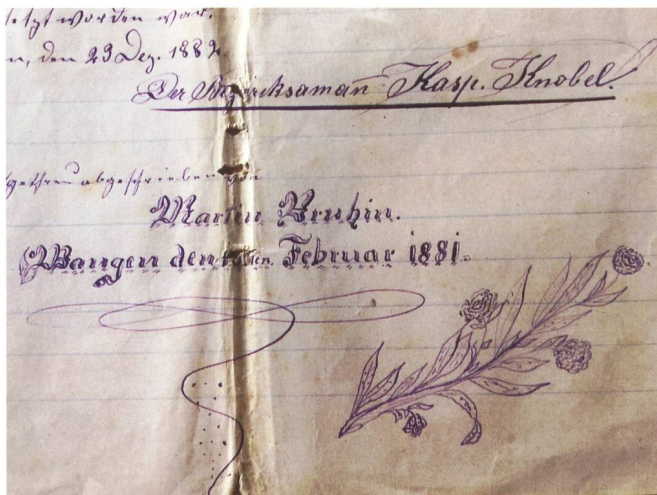 worden war.
n, den 23 Dez. 1882.
Der Bezirksaman̄ Kasp. Knobel.
abgeschrieben von
Martin Bruhin.
Wangen den Februar 1881.